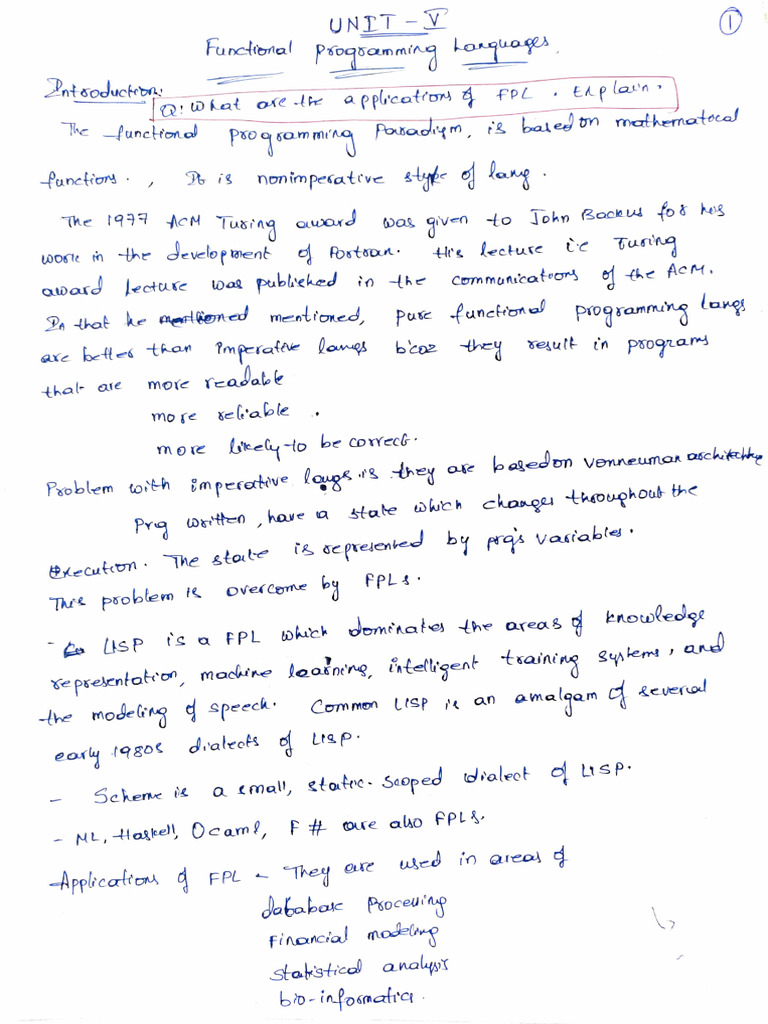 UNIT - V
1
Functional Programming Languages.
Introduction:
Q: What are the applications of FPL. Explain.
The functional programming Paradigm, is based on mathematocal
functions., It is nonimperative style of lang.
The 1977 ACM Turing award was given to John Backus for his
work in the development of Fortran. His lecture i.e Turing
award lecture was published in the communications of the ACM.
In that he mentioned, pure functional programming langs
are better than imperative langs b'coz they result in programs
that are more readable
more reliable.
more likely to be correct.
Problem with imperative langs is they are based on vonneuman architecture
Prg written, have a state which changes throughout the
Execution. The state is represented by prg's variables.
This problem is overcome by FPLs.
- LISP is a FPL which dominates the areas of knowledge
representation, machine learning, intelligent training systems, and
the modeling of speech. Common LISP is an amalgam of several
early 1980s dialects of LISP.
- Scheme is a small, static-scoped dialect of LISP.
- ML, Haskell, Ocaml, F# are also FPLs.
-Applications of FPL - They are used in areas of
database processing
Financial modeling
Statistical analysis
bio-informatics.